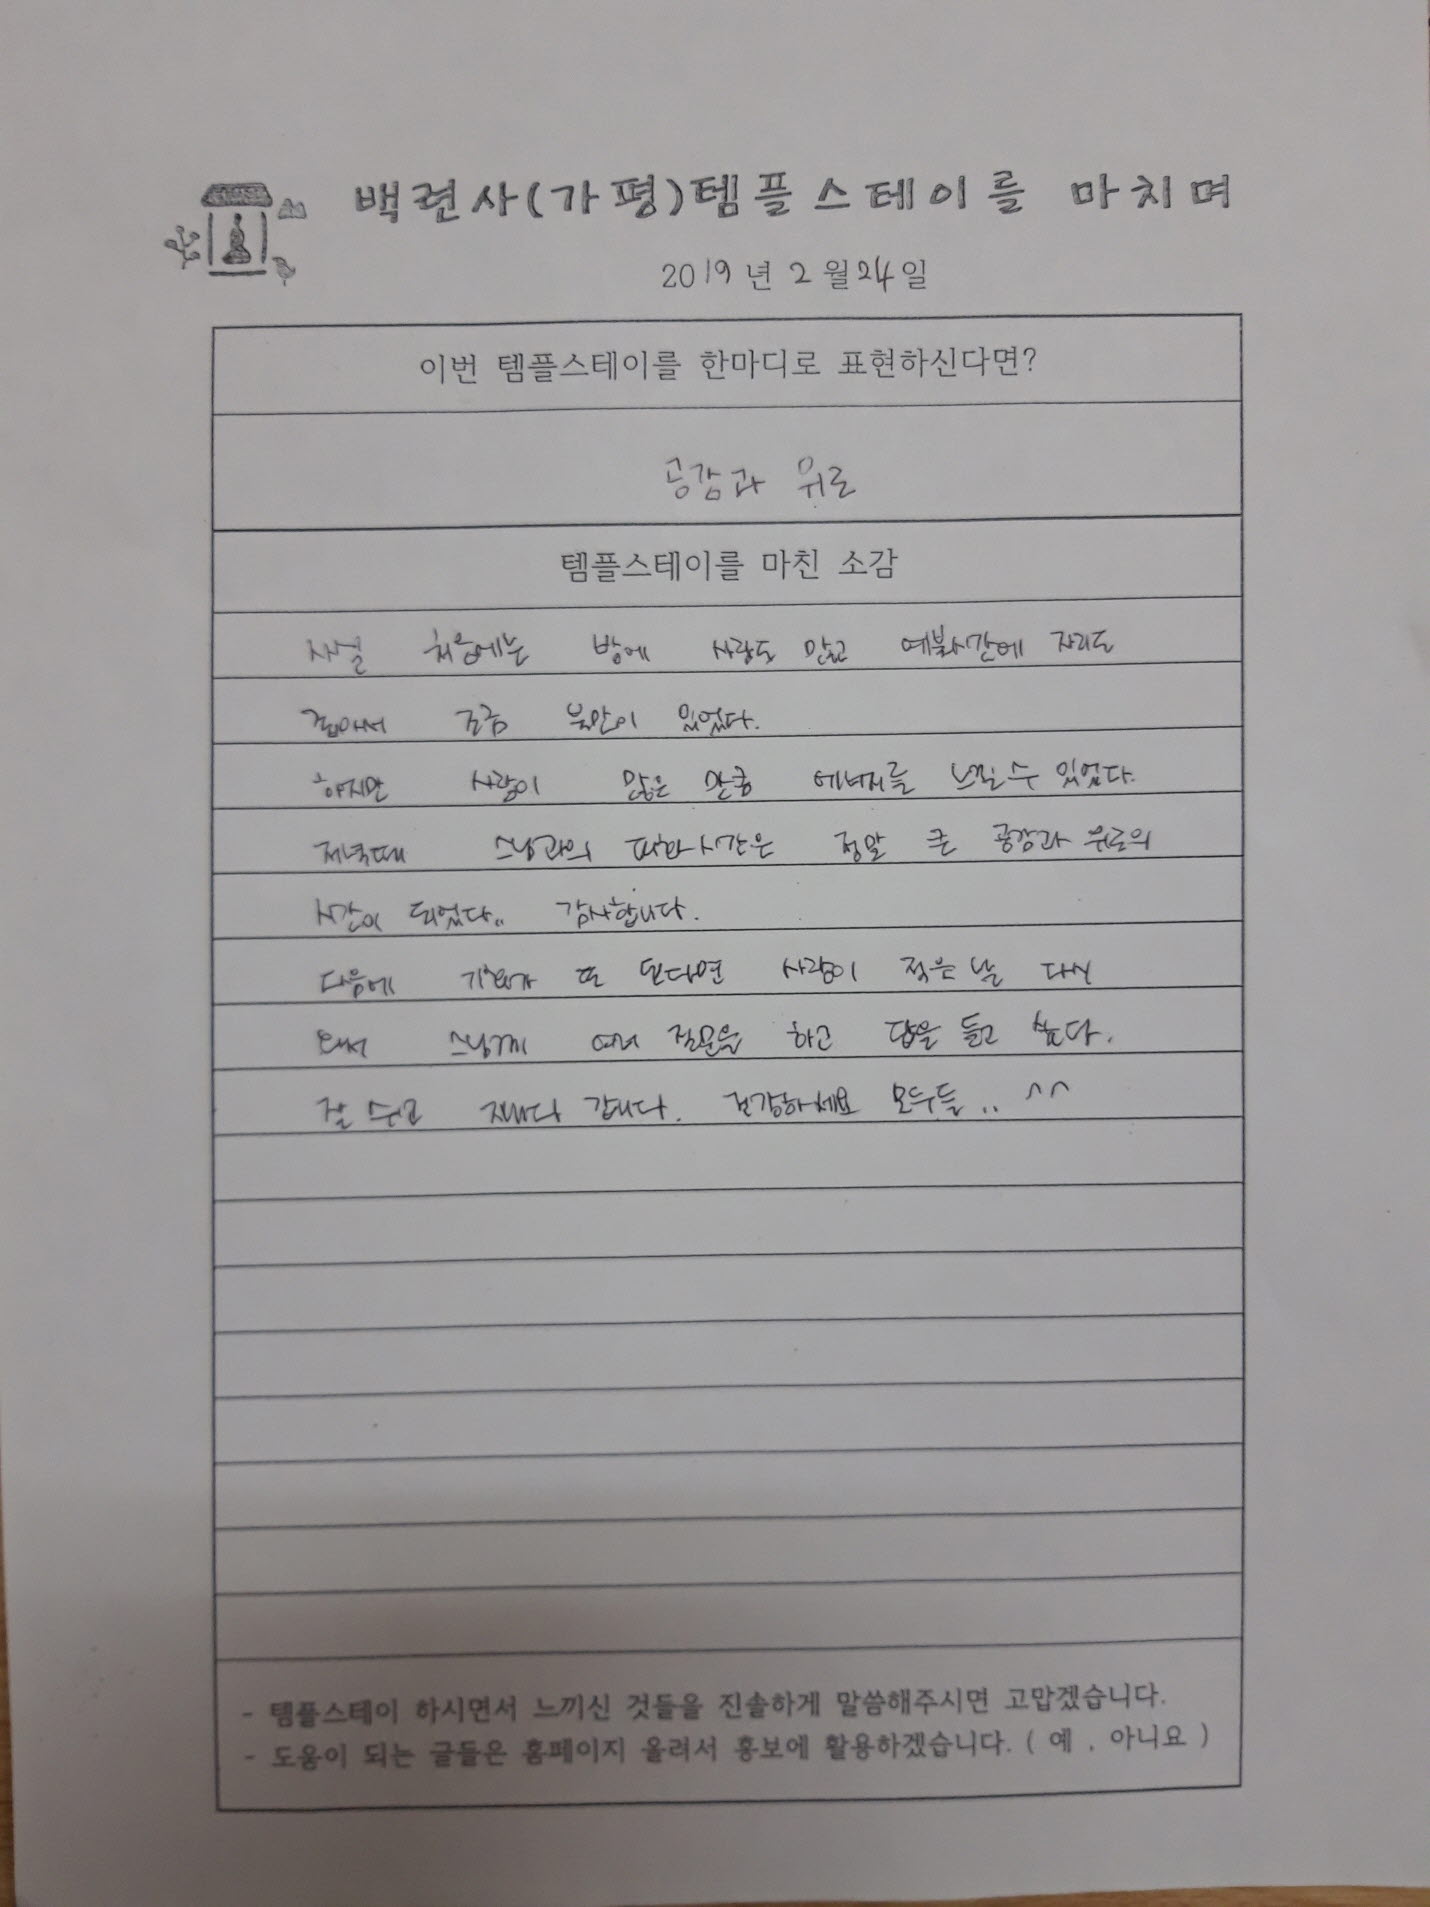 백련사(가평)템플스테이를 마치며
2019년 2월24일
이번 템플스테이를 한마디로 표현하신다면?
공감과 위로
템플스테이를 마친 소감
사실 처음에는 방에 사람도 많고 예불시간에 자리도
좁아서 조금 불만이 있었다.
하지만 사람이 많은 만큼 에너지를 느낄 수 있었다.
저녁때 스님과의 대화시간은 정말 큰 공감과 위로의
시간이 되었다.. 감사합니다.
다음에 기회가 또 된다면 사람이 적은 날 다시
와서 스님께 여러 질문을 하고 답을 듣고 싶다.
잘 쉬고 지내다 갑니다. 건강하세요 모두들.. ^^
- 템플스테이 하시면서 느끼신 것들을 진솔하게 말씀해주시면 고맙겠습니다.
- 도움이 되는 글들은 홈페이지 올려서 홍보에 활용하겠습니다. ( 예 , 아니요 )